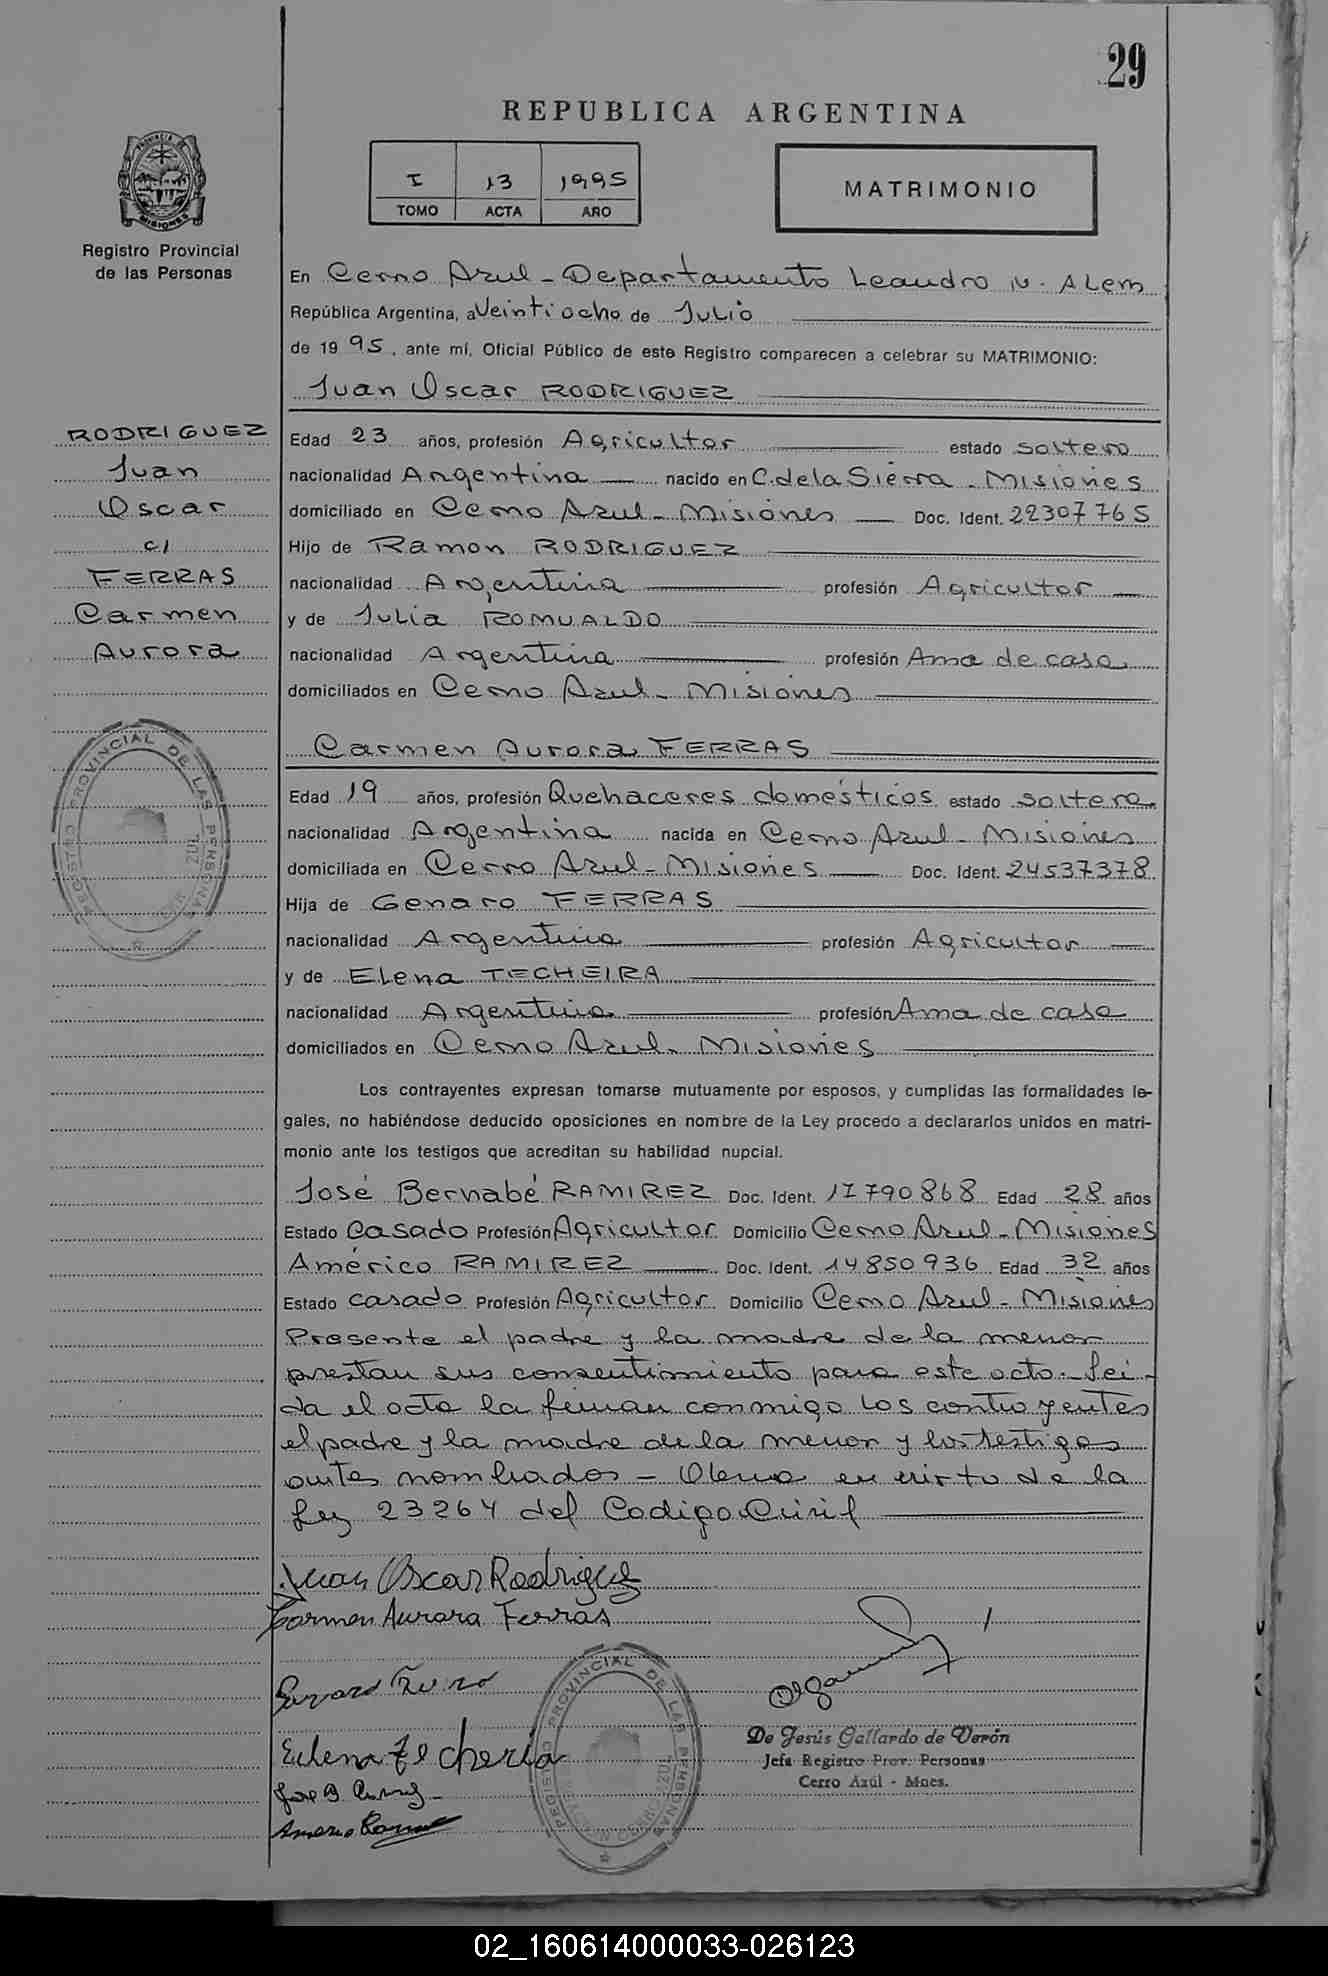 29
REPUBLICA ARGENTINA
I 13 1995
TOMO ACTA AÑO
MATRIMONIO
PROVINCIA DE MISIONES
Registro Provincial
de las Personas
En Cerro Azul - Departamento Leandro N. Alem
República Argentina, a Veintiocho de Julio
de 1995, ante mí, Oficial Público de este Registro comparecen a celebrar su MATRIMONIO:
Juan Oscar RODRIGUEZ
RODRIGUEZ
Juan
Oscar
c/
FERRAS
Carmen
Aurora
Edad 23 años, profesión Agricultor estado soltero
nacionalidad Argentina nacido en C. de la Sierra - Misiones
domiciliado en Cerro Azul - Misiones Doc. Ident. 22307765
Hijo de Ramon RODRIGUEZ
nacionalidad Argentina profesión Agricultor
y de Julia ROMUALDO
nacionalidad Argentina profesión Ama de casa
domiciliados en Cerro Azul - Misiones
Carmen Aurora FERRAS
Edad 19 años, profesión Quehaceres domésticos estado soltera
nacionalidad Argentina nacida en Cerro Azul - Misiones
domiciliada en Cerro Azul - Misiones Doc. Ident. 24537378
Hija de Genaro FERRAS
nacionalidad Argentina profesión Agricultor
y de Elena TECHEIRA
nacionalidad Argentina profesión Ama de casa
domiciliados en Cerro Azul - Misiones
REGISTRO PROVINCIAL DE LAS PERSONAS
Los contrayentes expresan tomarse mutuamente por esposos, y cumplidas las formalidades le-
gales, no habiéndose deducido oposiciones en nombre de la Ley procedo a declararlos unidos en matri-
monio ante los testigos que acreditan su habilidad nupcial.
José Bernabé RAMIREZ Doc. Ident. 17790868 Edad 28 años
Estado Casado Profesión Agricultor Domicilio Cerro Azul - Misiones
Américo RAMIREZ Doc. Ident. 14850936 Edad 32 años
Estado casado Profesión Agricultor Domicilio Cerro Azul - Misiones
Presente el padre y la madre de la menor
prestan sus consentimiento para este acto. Leí-
da el acta la firman conmigo los contrayentes
el padre y la madre de la menor y los testigos
antes nombrados - en virtud de la
Ley 23264 del Codigo Civil
Juan Oscar Rodriguez
Carmen Aurora Ferras
De Jesús Gallardo de Verón
Jefa Registro Prov. Personas
Cerro Azúl - Mnes.
REGISTRO PROVINCIAL DE LAS PERSONAS
02_160614000033-026123